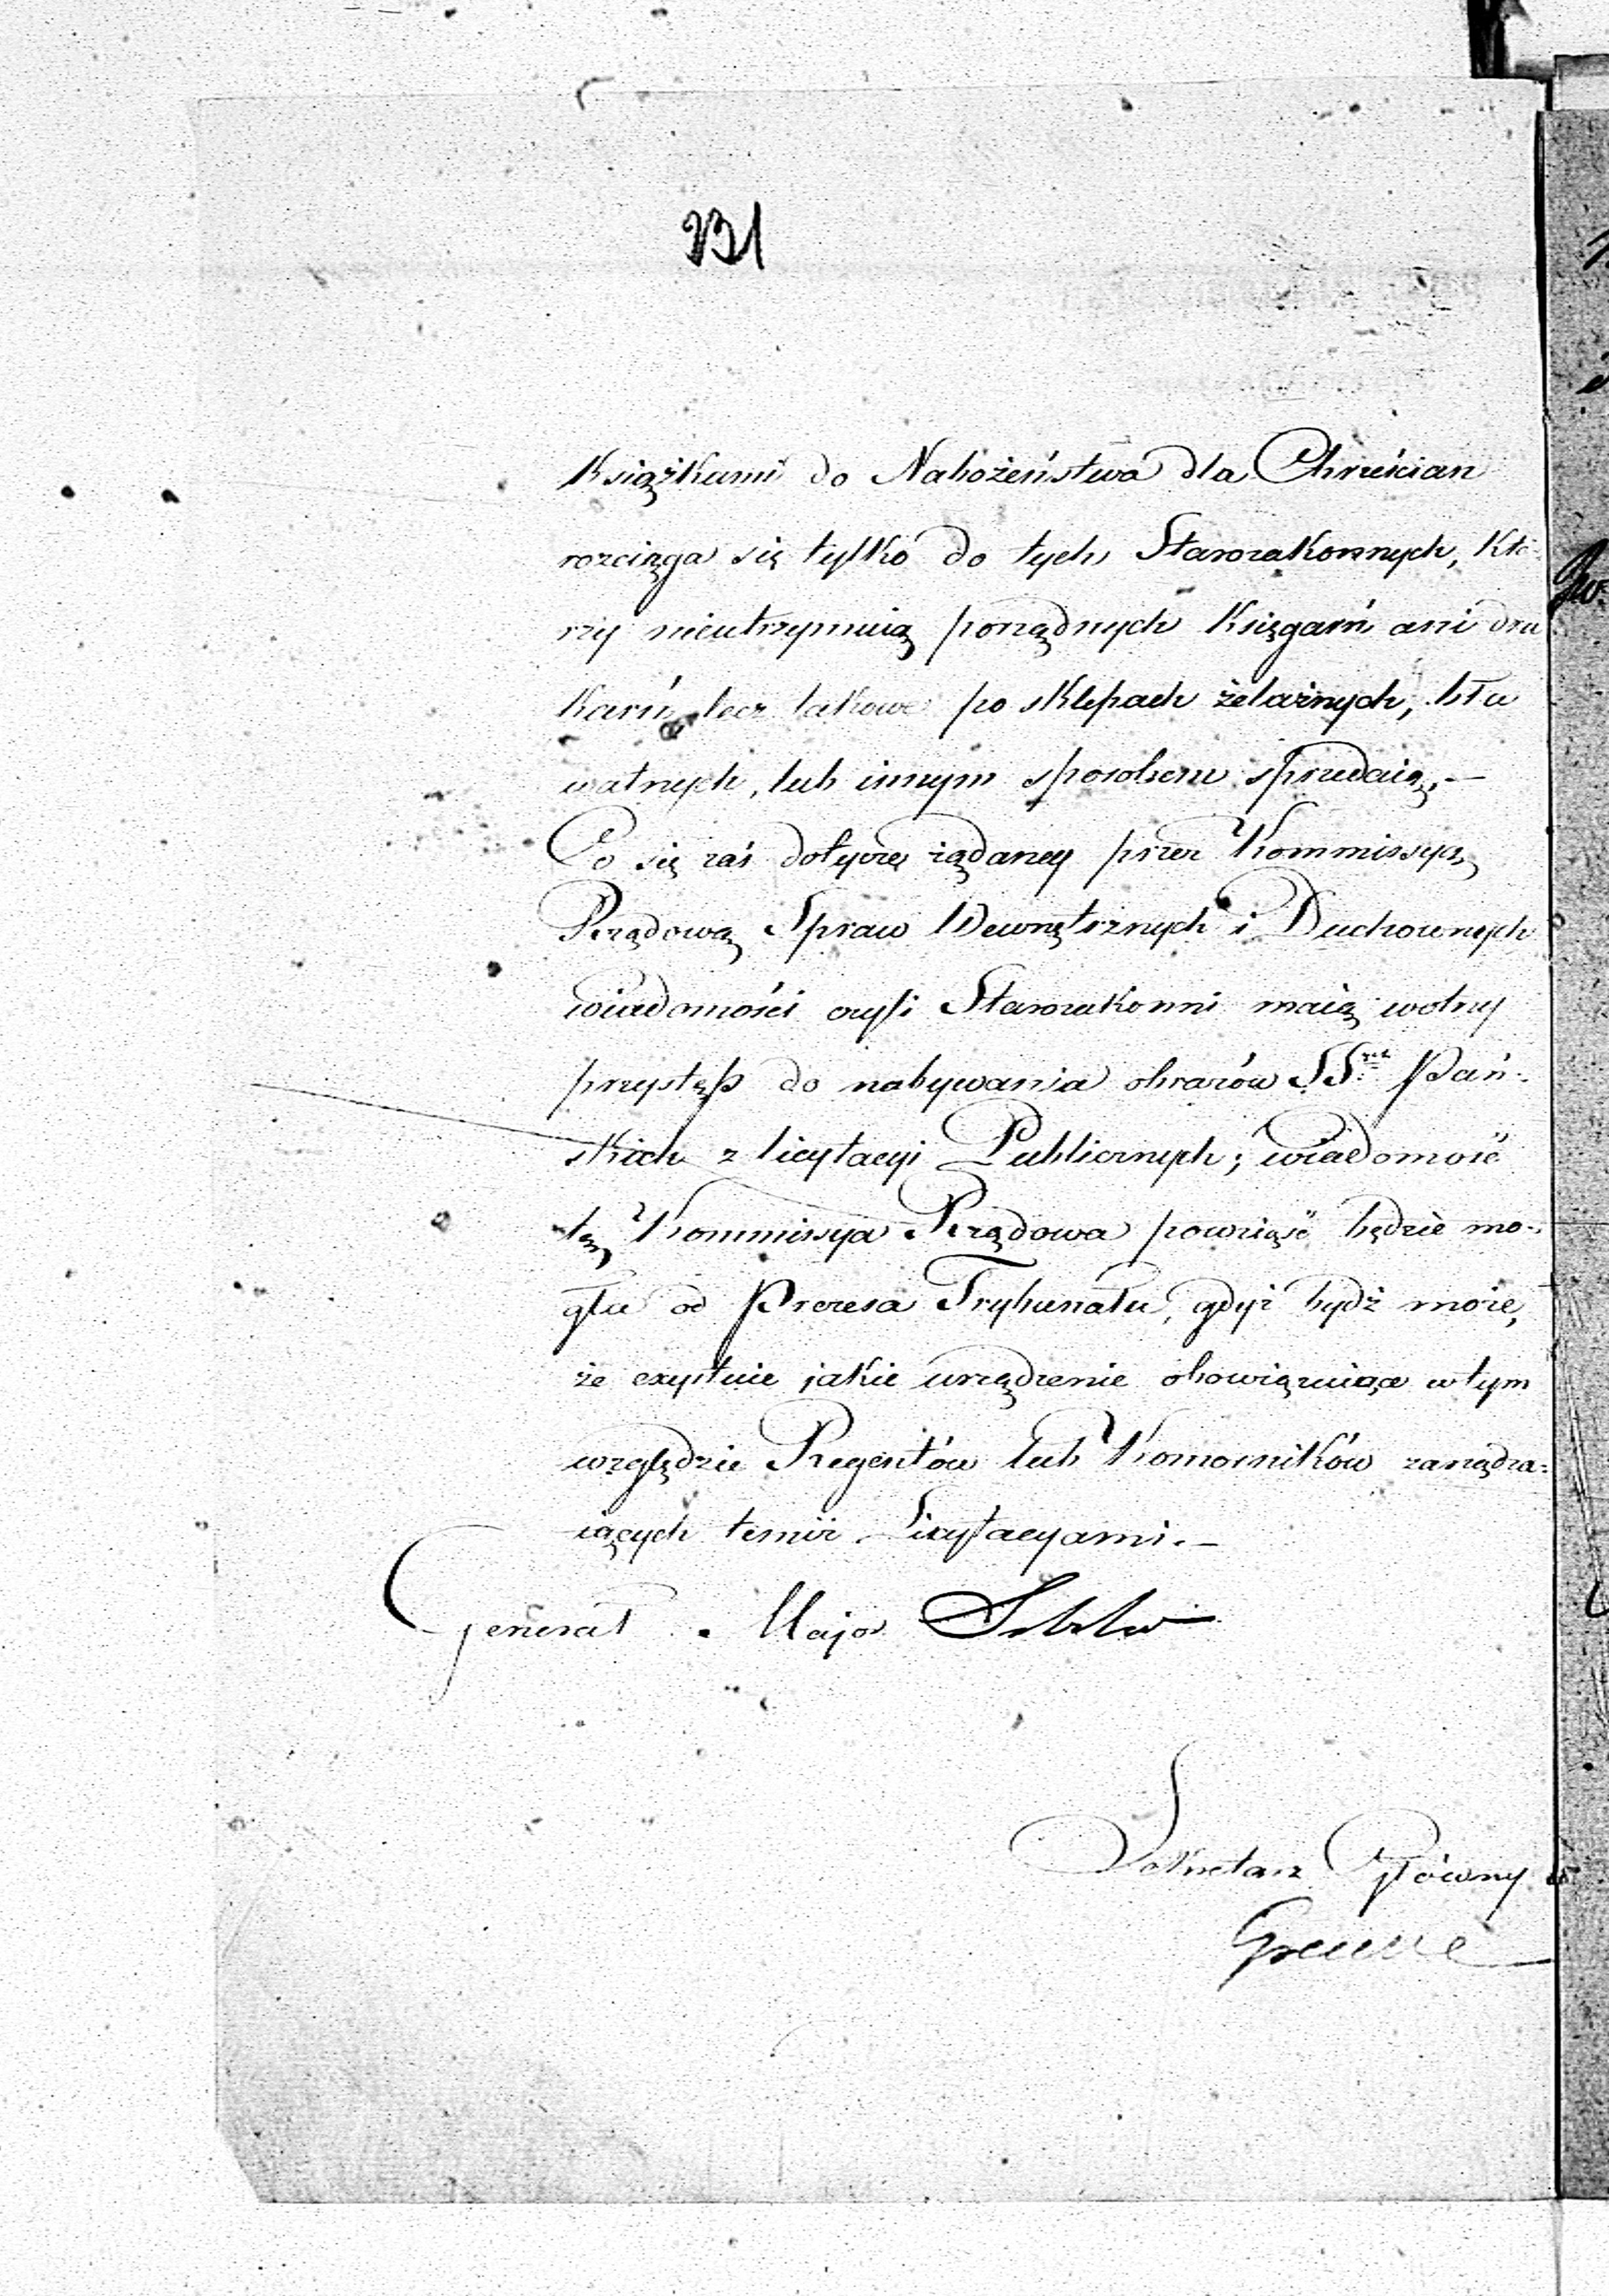 231
Książkami do Nabożeństwa dla Chrześcian
rozciąga się tylko do tych Starozakonnych, któ
rzy nieutrzymuią porządnych Księgarń ani dru
karń lecz takowe po sklepach żelaznych, bła
watnych, lub innym sposobem sprzedaią.—
Co się zaś dotycze żądaney przez Kommissyą
Rządową Spraw Wewnętrznych i Duchownych
wiadomości czyli Starozakonni maią wolny
przystęp do nabywania obrazów SS. Pań-
skich z licytacyi Publicznych; wiadomość
tę Kommissya Rządowa powziąść będzie mo-
gła od Prezesa Trybunału, gdyż bydź może,
że exystuie jakie urządzenie obowięzuiące w tym
względzie Regentów lub Komorników zarządza-
iących temiż Licytacyami.—
Generał Major
Sekretarz Główny